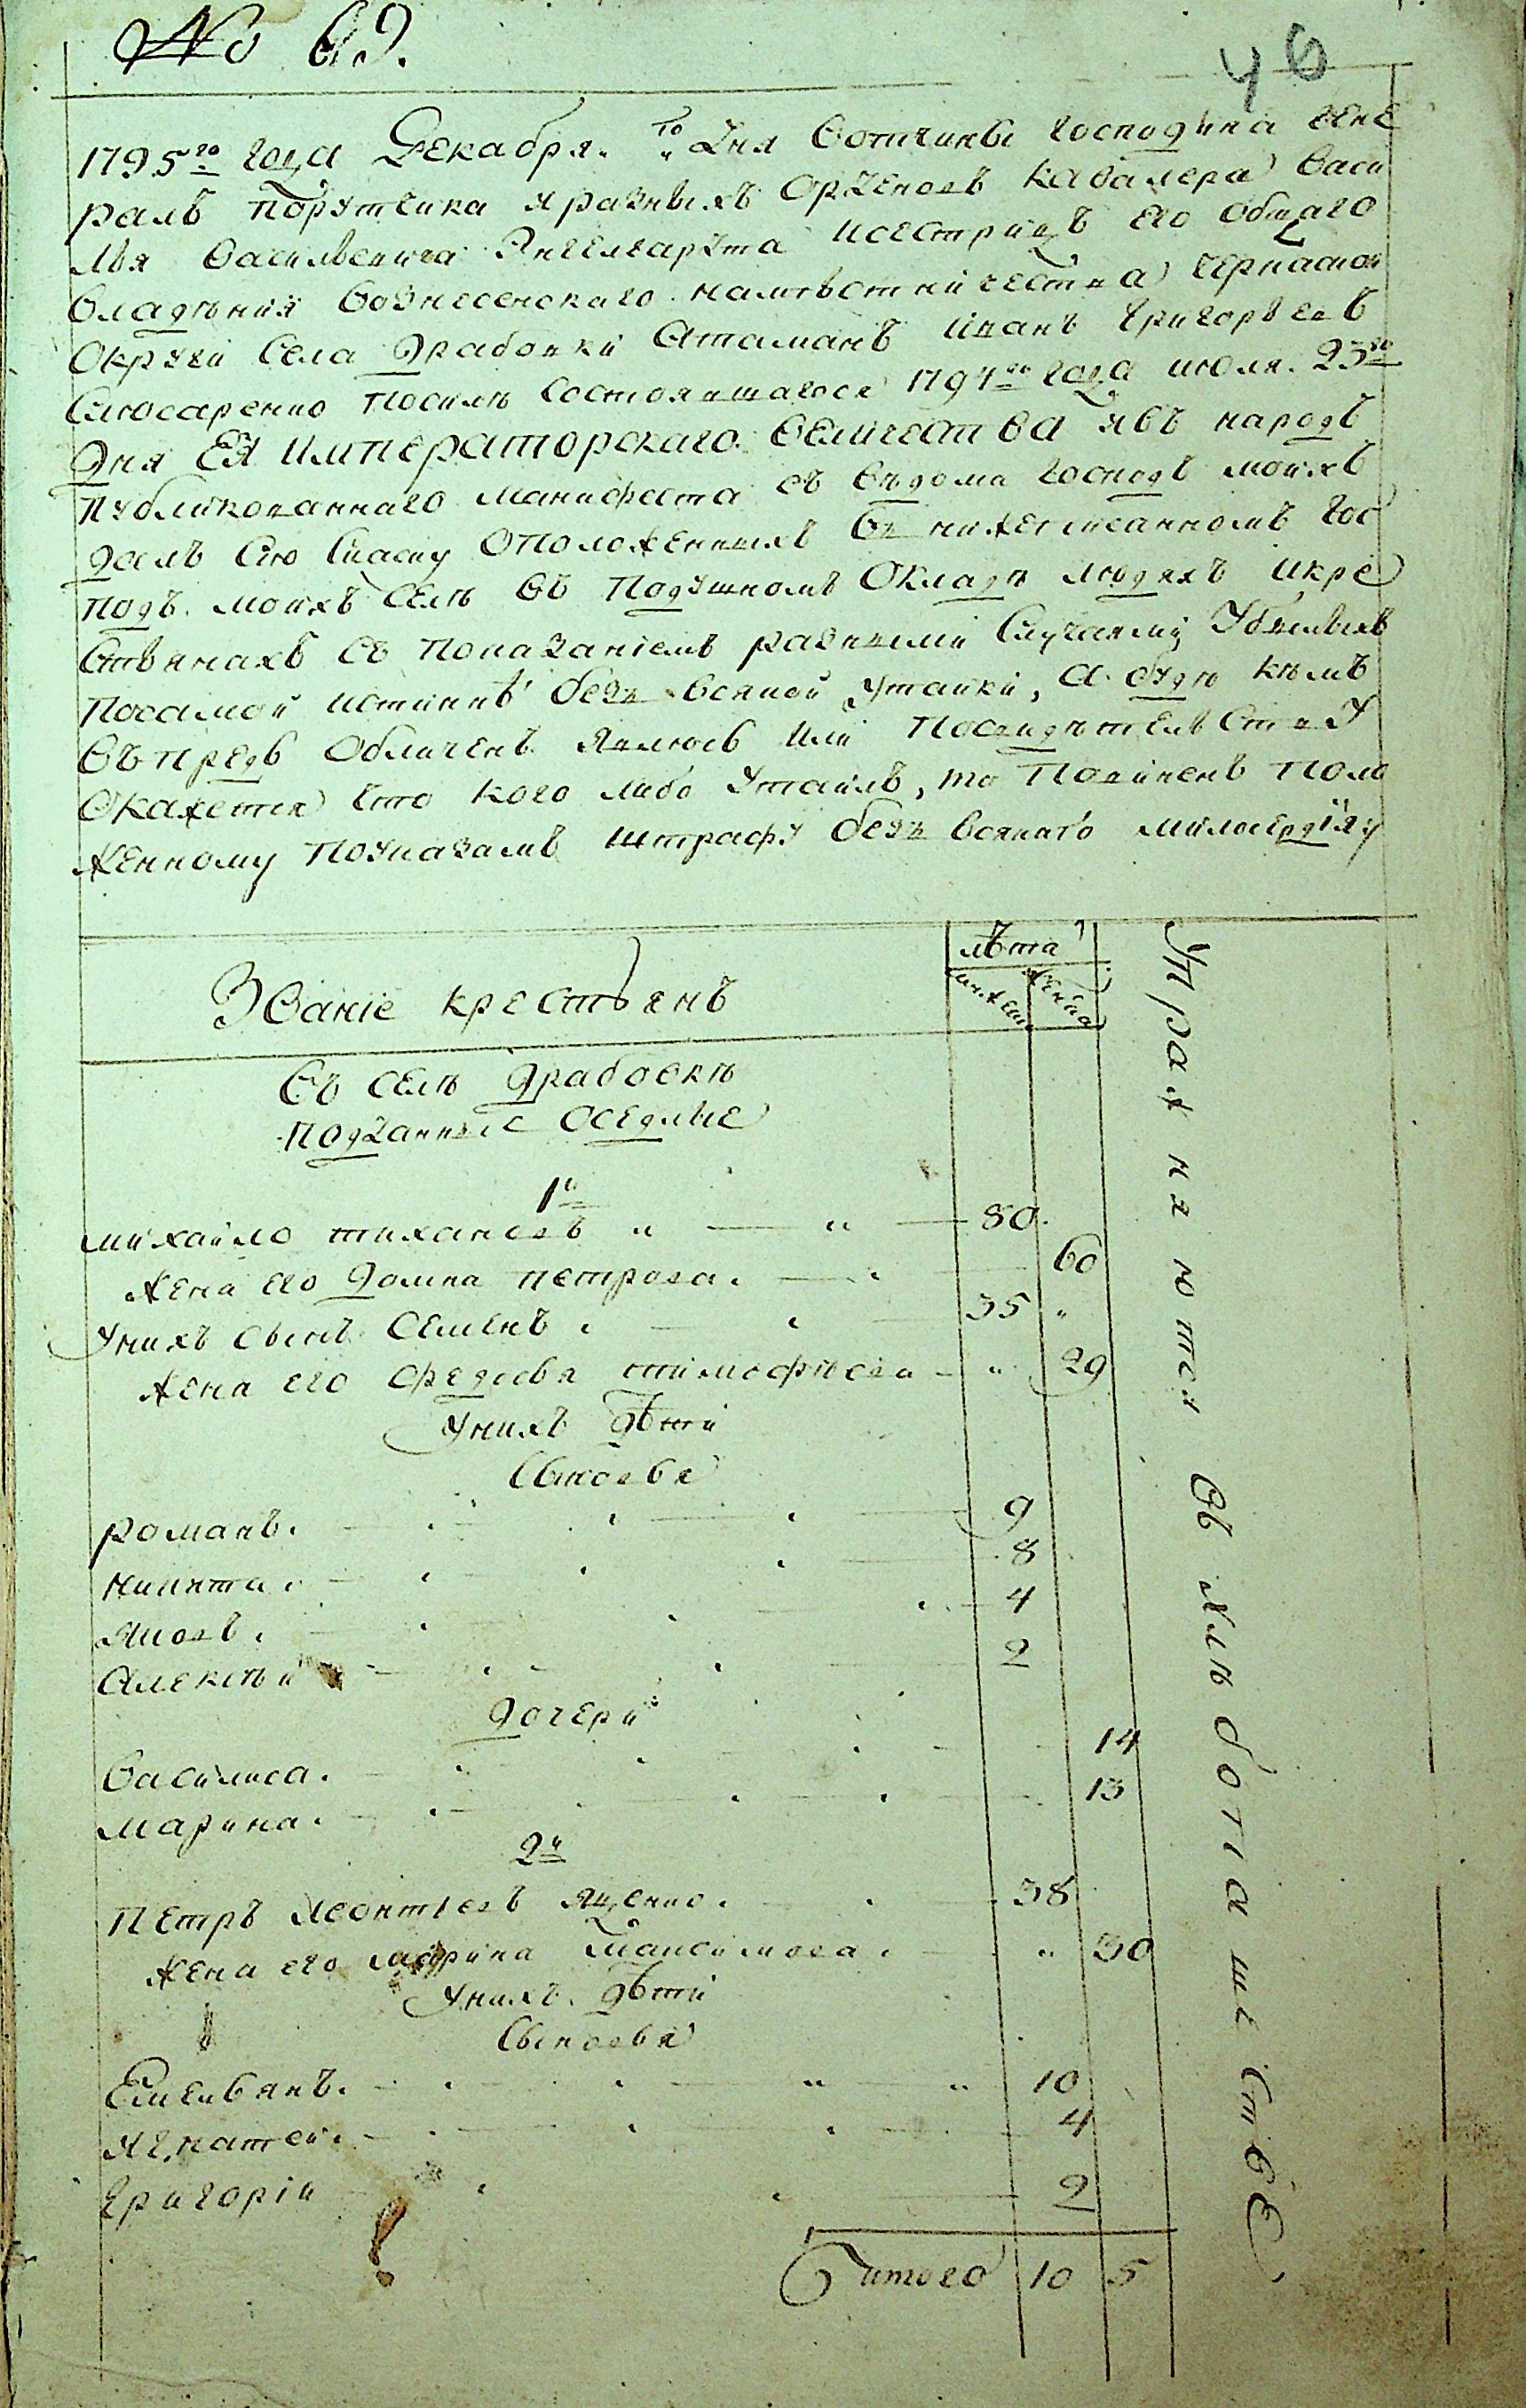 № 69.
46
1795го года Декабря. „ Дня вотчины господина гене
ралъ порутчика яразныхъ орденовъ кавалера Васи
лья васильевича Энгелгардта исестрицъ его общаго
владѣния вознесенскаго намѣстничества черкаской
округи села Драбовки атаманъ иванъ григорьевъ
Слюсаренко посилѣ состоявшагося 1794го года июля. 23го
дня ЕЯ императорскаго величества явъ народъ
публикованнаго манифеста съ вѣдома господъ моихъ
далъ сию скаску оположенныхъ въ нижеписанномъ гос
подъ. моихъ селѣ въ подушномъ окладѣ людяхъ икре
стьянахъ съ показаниемъ разными случаями убылыхъ
посамой истиннѣ безъ всякой утайки, а будю кѣмъ
въпредь обличенъ явлюсь или посвидѣтельству
окажется что кого либо утаилъ, то повиненъ поло
женному поуказамъ штрафу безъ всякаго милосердїя
Званіе крестьянъ
лѣта
мужеск
женска
въ селѣ драбовкѣ
подданные оседлые
1й
михайло тихановъ „ — „ — 80.
жена его домна петрова. — 60
унихъ сынъ семенъ. — 35 „
жена его федосья тимофѣева — „ 29
унихъ дѣти
сыновья
романъ. — 9
никита. — 8
яковъ. — 4
алексѣй — 2
дочери
василиса. — 14
марина. — 13
2й
петръ леонтіевъ яценко. — 38
жена его марина максимова. — „ 30
унихъ. дѣти
сыновья
Емельянъ. — 10
игнатей. — 4
григоріи — 2
итого 10 5
упражняются въ хлѣбопашествѣ